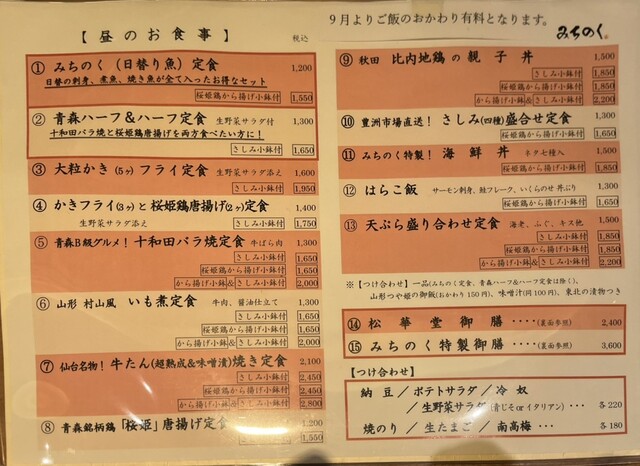 9月よりご飯のおかわり有料となります。
みちのく
【昼のお食事】
税込
① みちのく(日替り魚)定食 1,200
日替の刺身、煮魚、焼き魚が全て入ったお得なセット
桜姫鶏から揚げ小鉢付 1,550
② 青森ハーフ&ハーフ定食 生野菜サラダ付 1,300
十和田バラ焼と桜姫鶏唐揚げを両方食べたい方に!
さしみ小鉢付 1,650
③ 大粒かき(5ヶ)フライ定食 生野菜サラダ添え 1,600
さしみ小鉢付 1,950
④ かきフライ(3ヶ)と桜姫鶏唐揚げ(2ヶ)定食 1,400
生野菜サラダ添え さしみ小鉢付 1,750
⑤ 青森B級グルメ!十和田バラ焼定食 牛ばら肉 1,300
さしみ小鉢付 1,650
桜姫鶏から揚げ小鉢付 1,650
から揚げ小鉢&さしみ小鉢付 2,000
⑥ 山形 村山風 いも煮定食 牛肉、醤油仕立て 1,300
さしみ小鉢付 1,650
桜姫鶏から揚げ小鉢付 1,650
から揚げ小鉢&さしみ小鉢付 2,000
⑦ 仙台名物!牛たん(超熟成&味噌漬)焼き定食 2,100
さしみ小鉢付 2,450
桜姫鶏から揚げ小鉢付 2,450
から揚げ小鉢&さしみ小鉢付 2,800
⑧ 青森銘柄鶏「桜姫」唐揚げ定食 1,200
さしみ小鉢付 1,550
⑨ 秋田 比内地鶏の親子丼 1,500
さしみ小鉢付 1,850
桜姫鶏から揚げ小鉢付 1,850
から揚げ小鉢&さしみ小鉢付 2,200
⑩ 豊洲市場直送!さしみ(四種)盛合せ定食 1,300
桜姫鶏から揚げ小鉢付 1,650
⑪ みちのく特製!海鮮丼 ネタ七種入 1,500
桜姫鶏から揚げ小鉢付 1,850
⑫ はらこ飯 サーモン刺身、鮭フレーク、いくらのせ丼ぶり 1,300
桜姫鶏から揚げ小鉢付 1,650
⑬ 天ぷら盛り合わせ定食 海老、ふぐ、キス他 1,500
さしみ小鉢付 1,850
桜姫鶏から揚げ小鉢付 1,850
から揚げ小鉢&さしみ小鉢付 2,200
※【つけ合わせ】一品(みちのく定食、青森ハーフ&ハーフ定食は除く)、
山形つや姫の御飯(おかわり150円)、味噌汁(同100円)、東北の漬物つき
⑭ 松華堂御膳 ････(裏面参照) 2,400
⑮ みちのく特製御膳 ････(裏面参照) 3,600
【つけ合わせ】
納豆/ポテトサラダ/冷奴
/生野菜サラダ(青じそorイタリアン)･･･ 各220
焼のり/生たまご/南高梅 ････ 各180